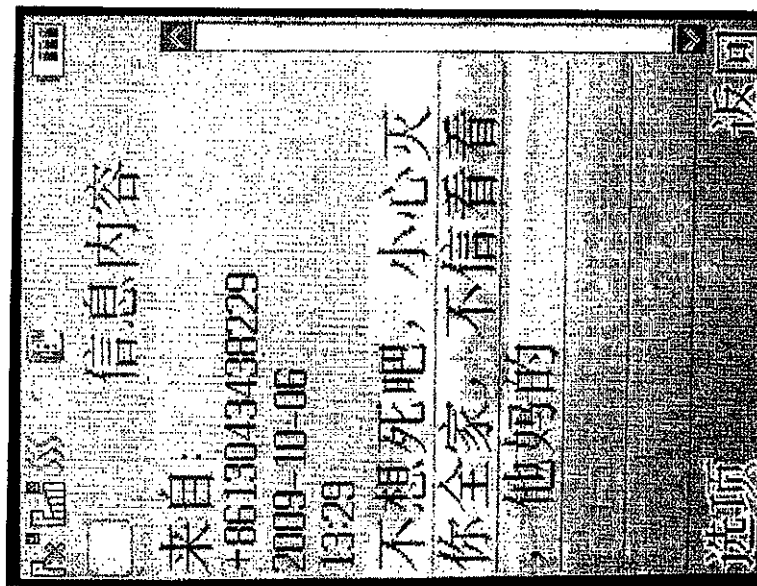 信息内容
来自:
+8613043438229
2009-10-06
13:29
不想死吧，小心灭
你全家，不信看看
，他妈的
选项 返回